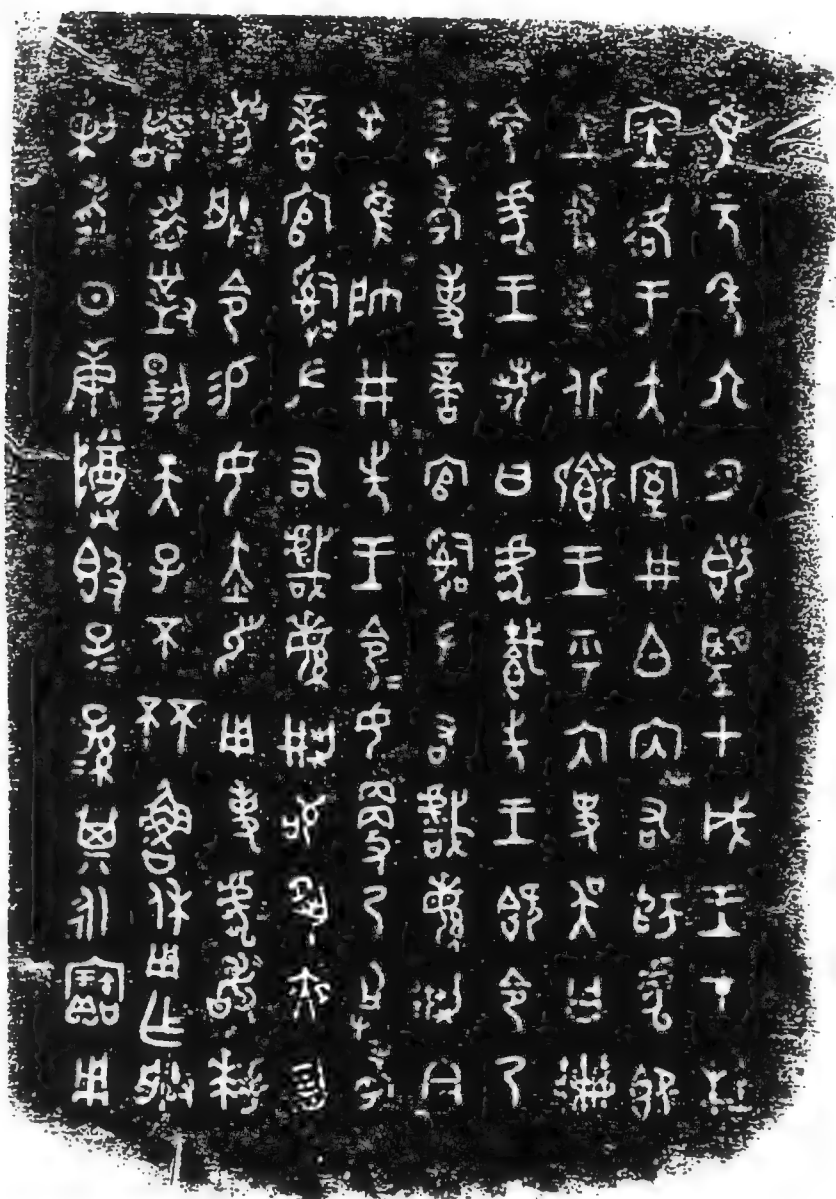 隹元年六月既望甲戌王才杜
㡴各于大室井白内右師虎即
立中廷北鄉王乎内史吳曰冊
令虎王若曰虎𩛥先王既令乃
祖考事啻官𤔲左右戲緐荊今
余隹帥井先王令令女更乃祖考
啻官𤔲左右戲緐荊苟夙夜勿
灋朕令易女赤舄用事虎敢拜
𩒨首對揚天子不𣏾魯休用乍朕
剌考日庚𨺅𣪘子子孫孫其永寶用